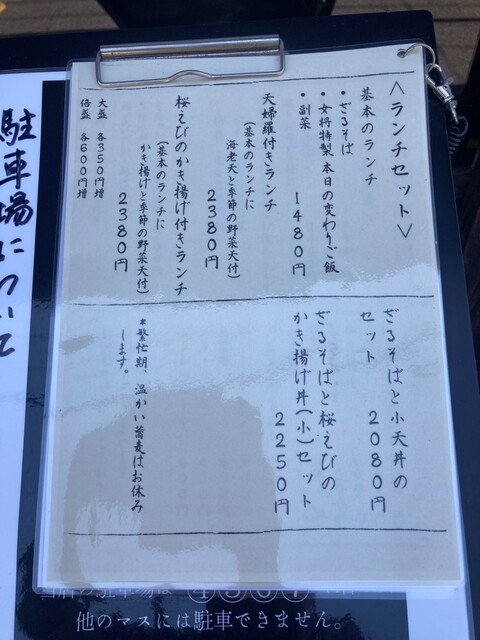 <ランチセット>
基本のランチ
• ざるそば
• 女将特製 本日の変わりご飯
• 副菜
1480円
天婦羅付きランチ
(基本のランチに
海老天と季節の野菜天付)
2380円
桜えびのかき揚げ付きランチ
(基本のランチに
かき揚げと季節の野菜天付)
2380円
大盛 各350円増
倍盛 各600円増
ざるそばと小天丼の
セット
2080円
ざるそばと桜えびの
かき揚げ丼(小)セット
2250円
*繁忙期、温かい蕎麦はお休み
します。
駐車場について
他のマスには駐車できません。